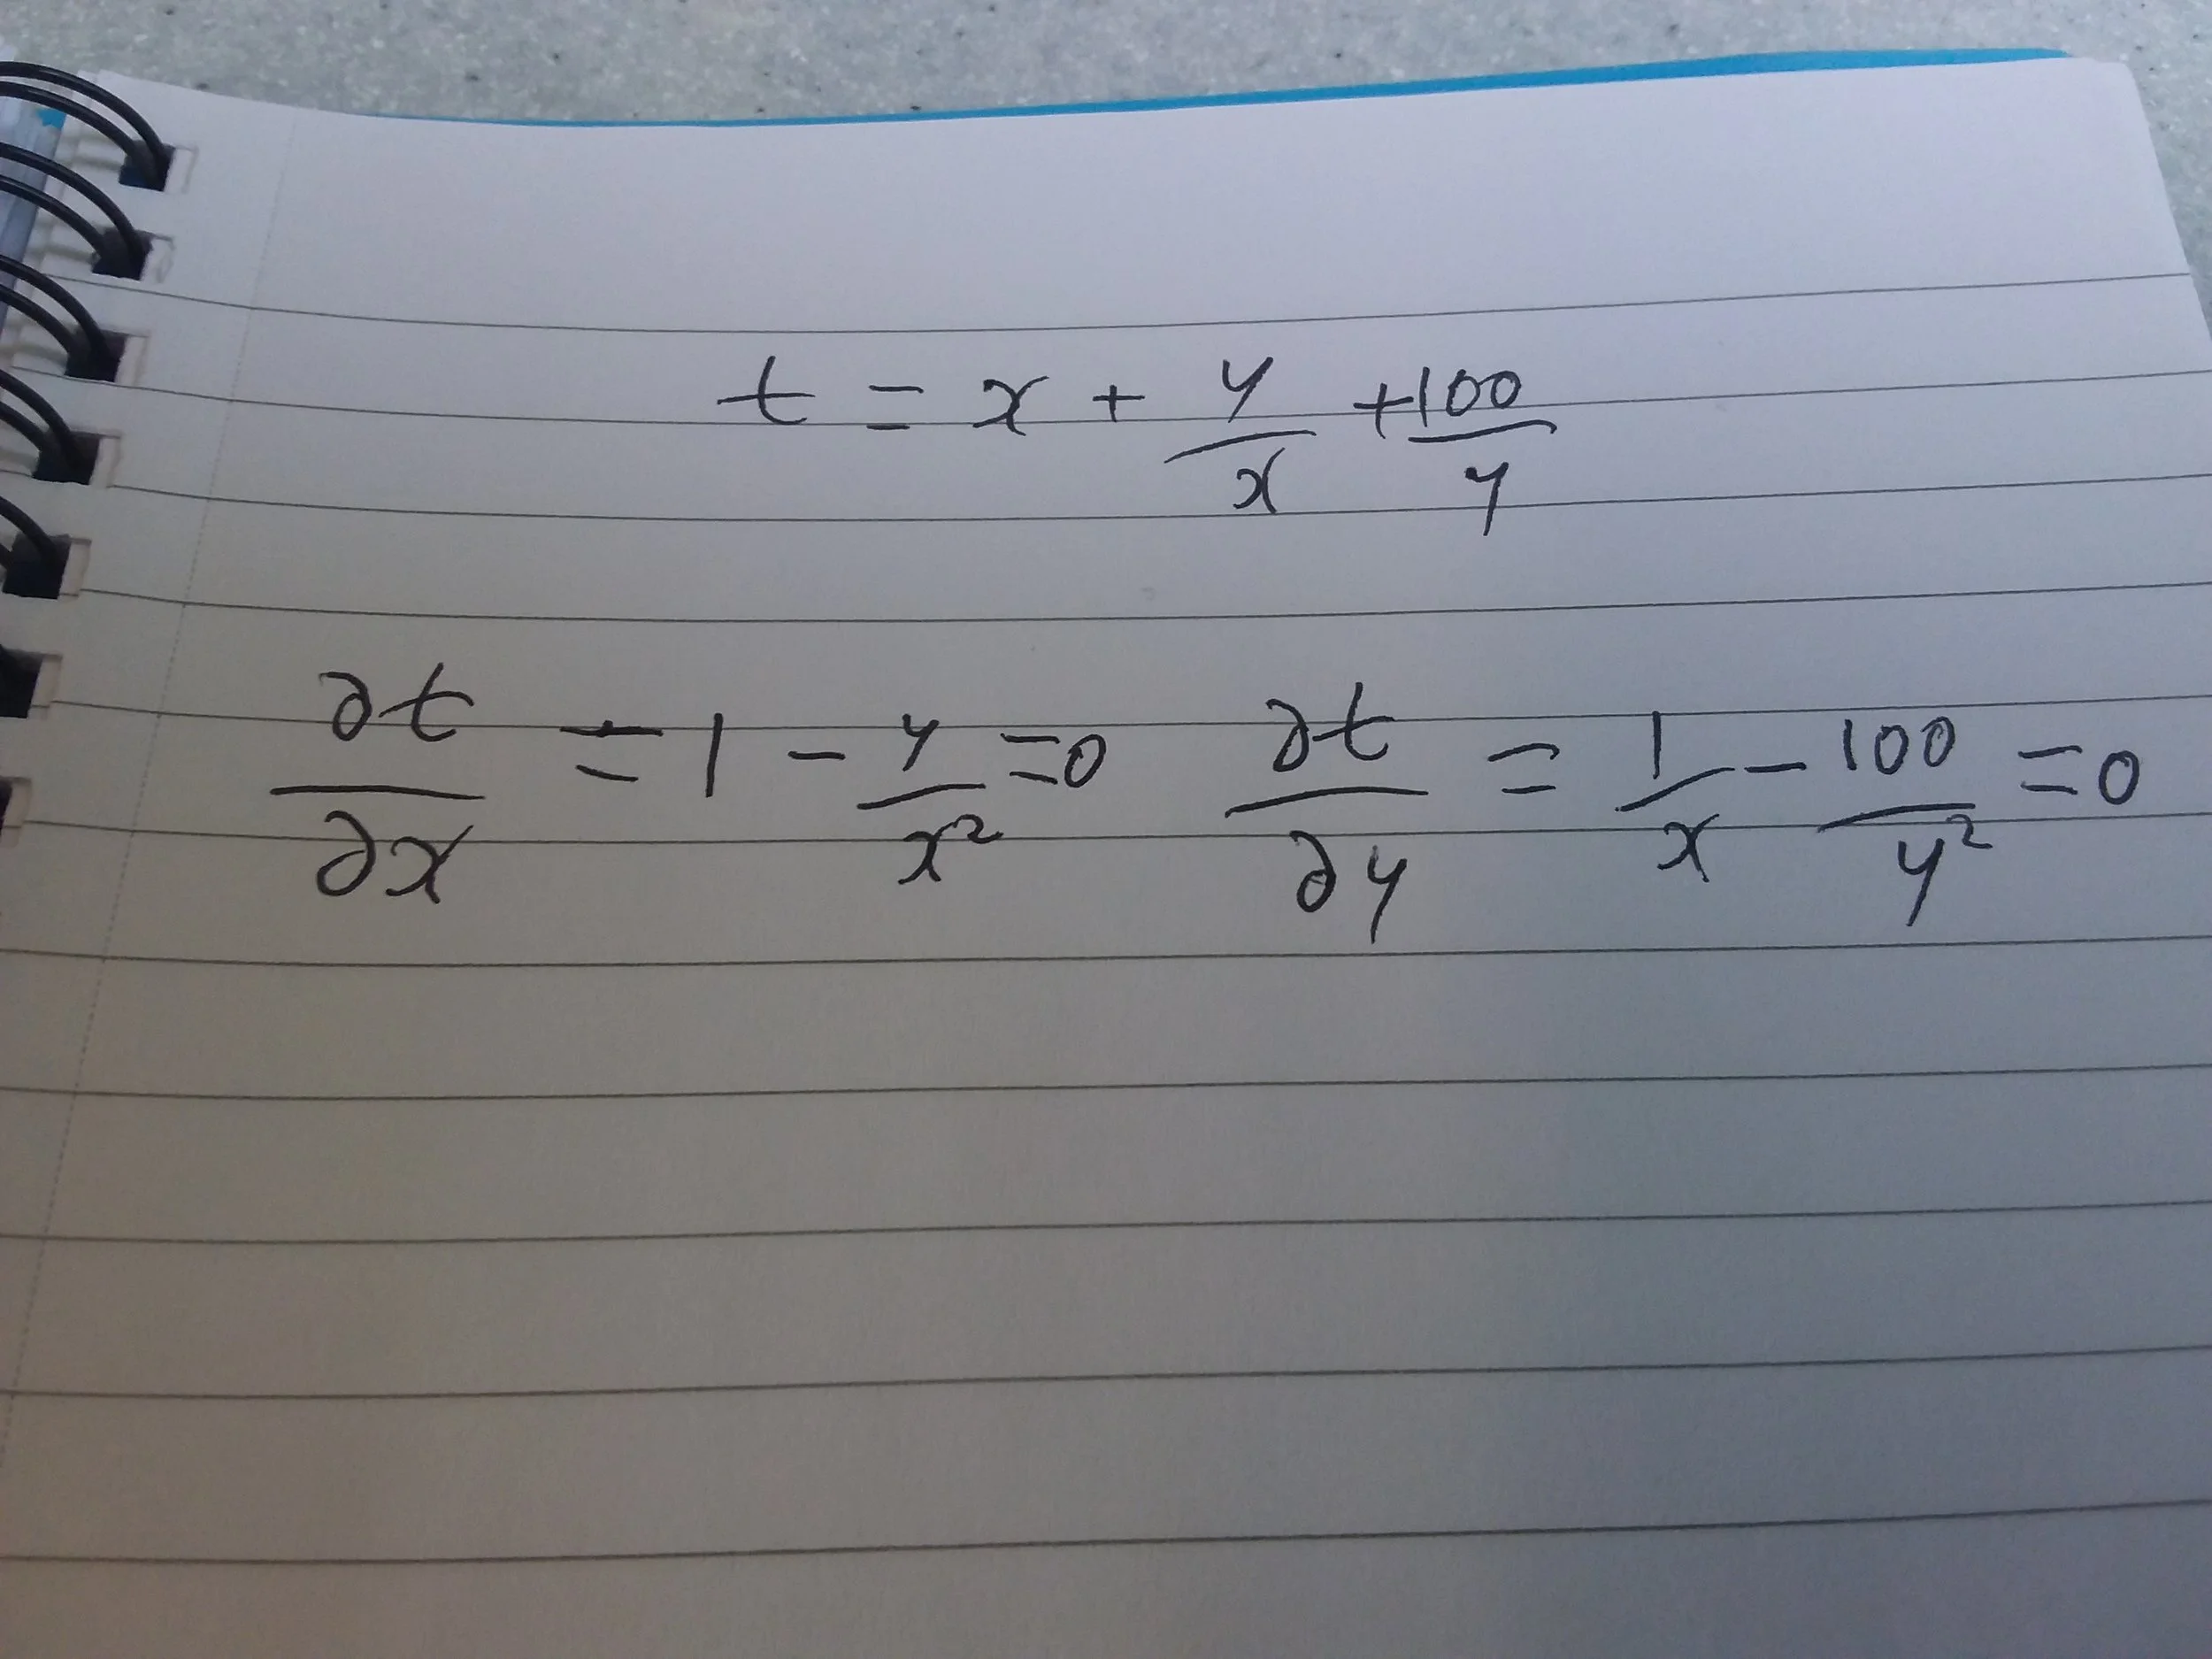 t = x + y/x + 100/y
∂t/∂x = 1 - y/x² = 0 ∂t/∂y = 1/x - 100/y² = 0